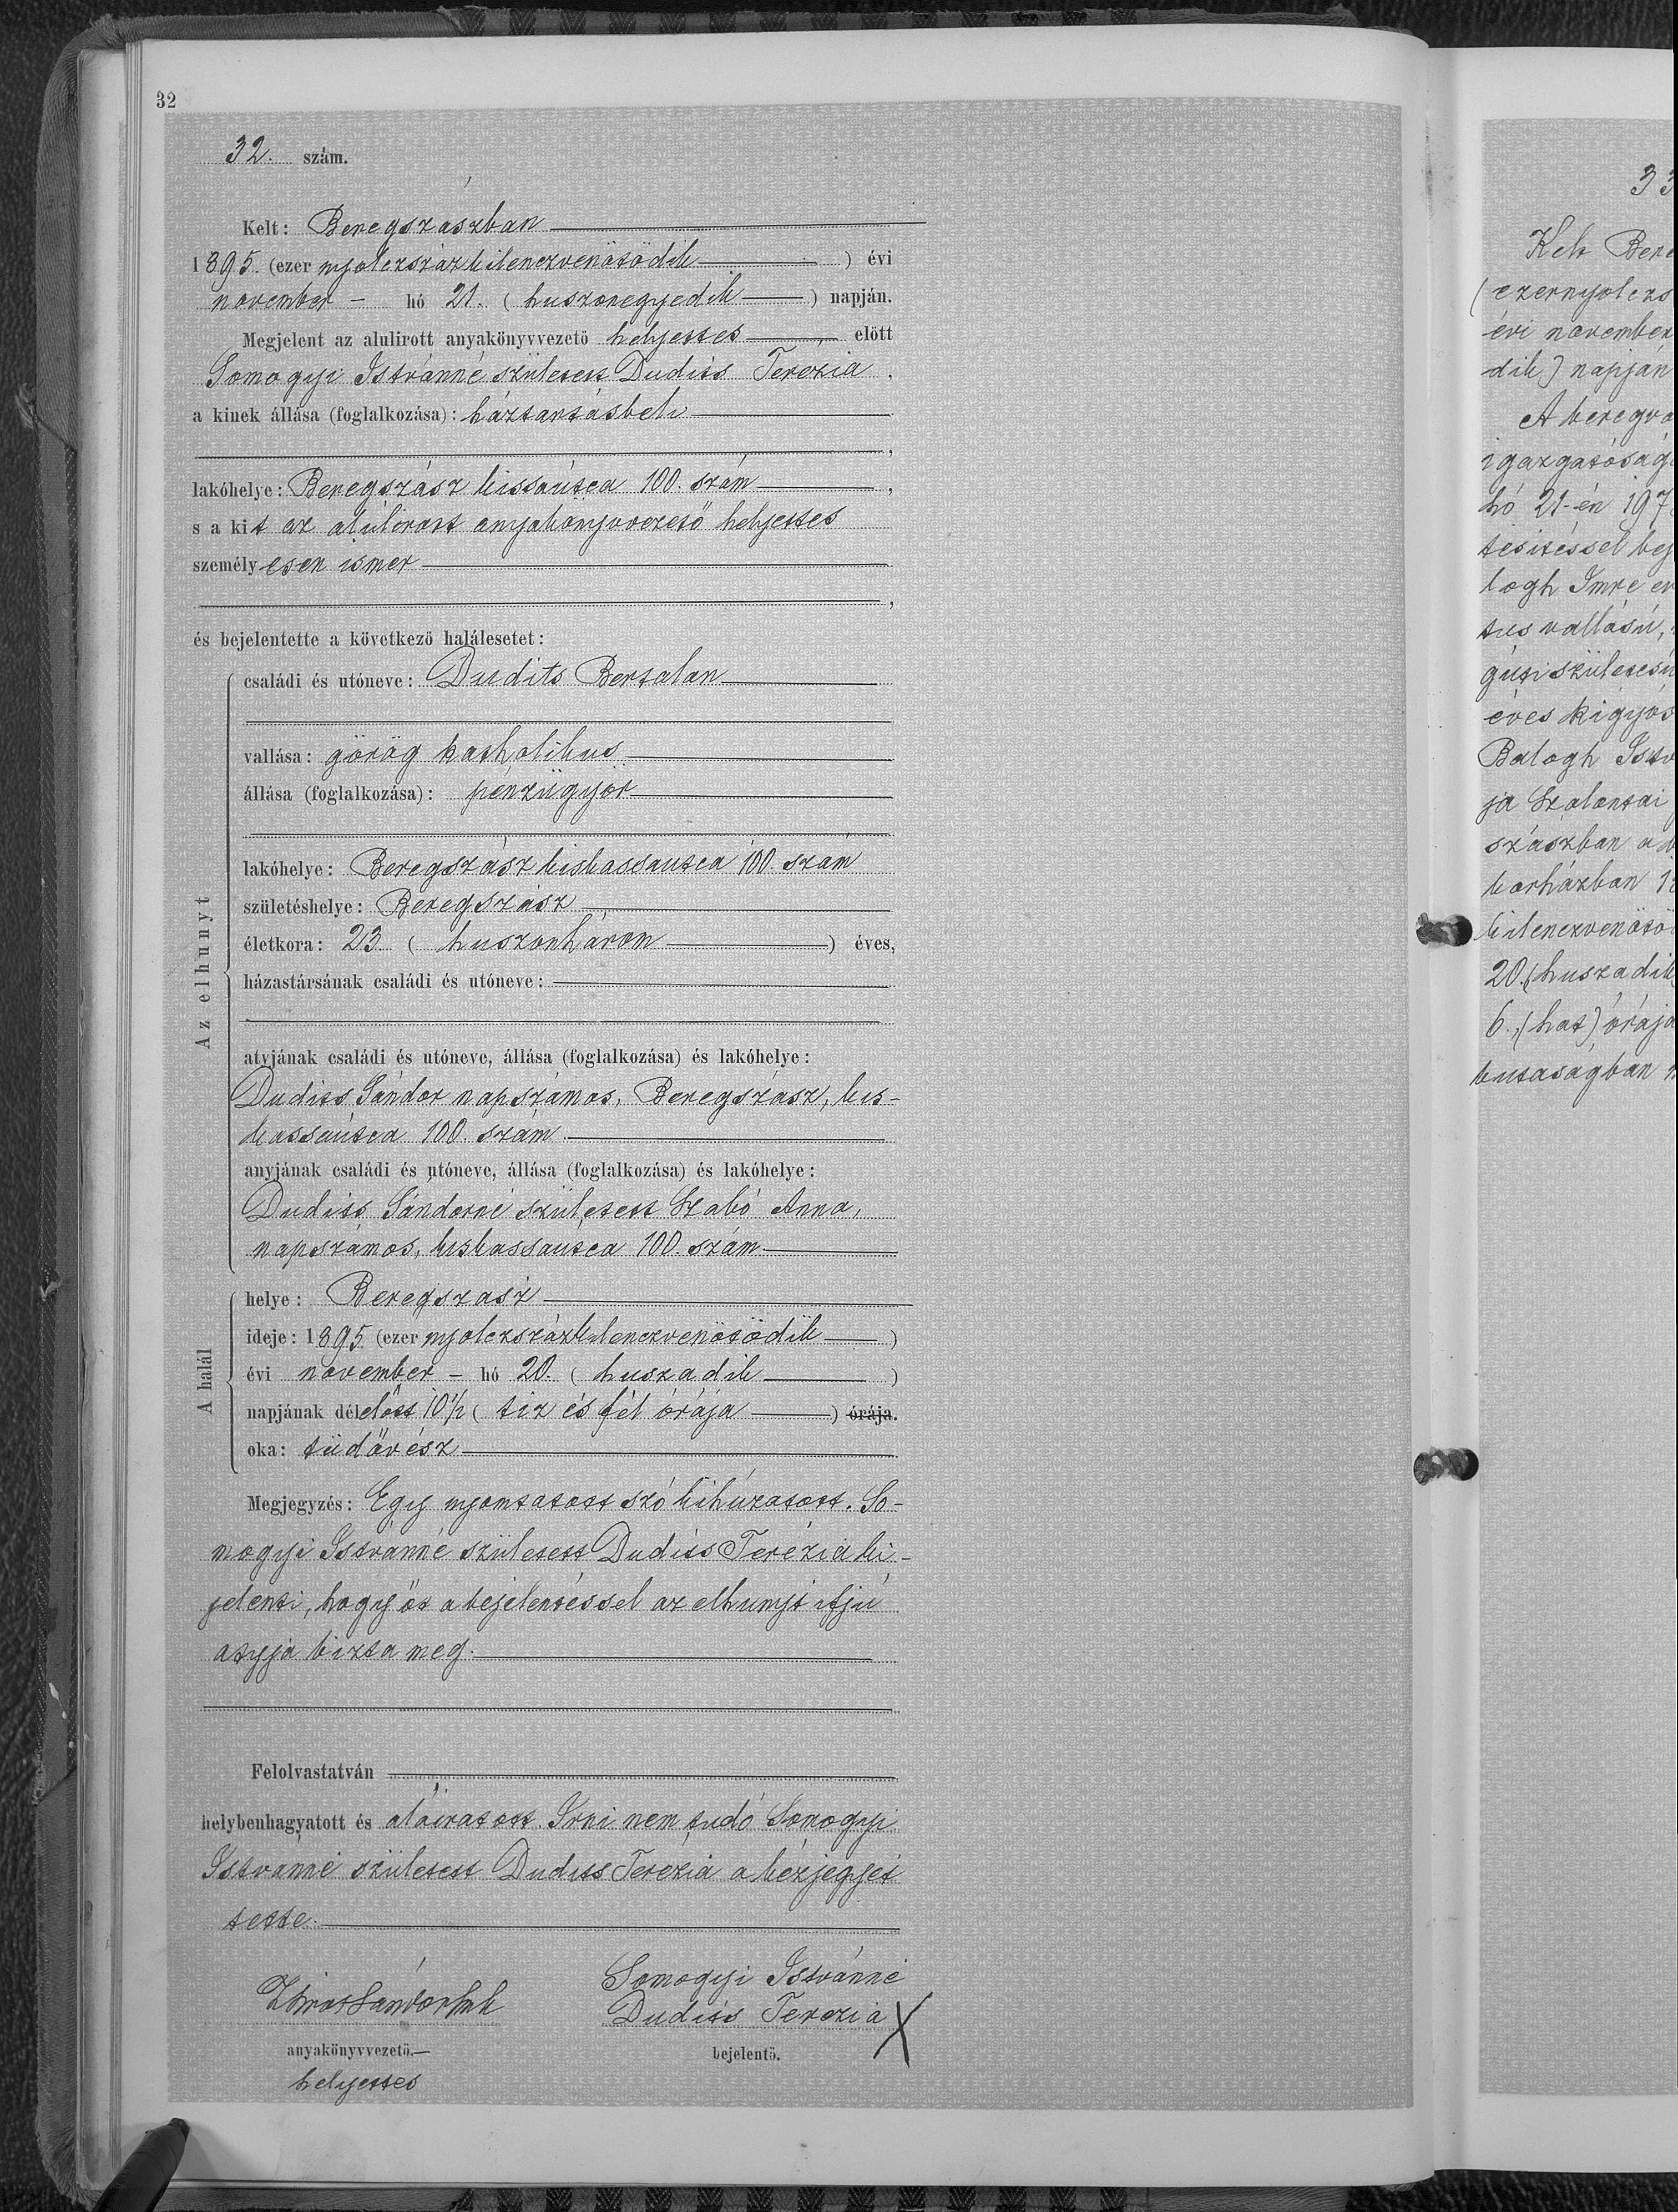 32
32. szám.
Kelt: Beregszászban
1895. (ezer nyolczszázkilenczvenötödik ) évi
november - hó 21. ( huszonegyedik ) napján.
Megjelent az alulirott anyakönyvvezető helyettes előtt
Somogyi Istvánné született Dudits Terézia
a kinek állása (foglalkozása): háztartásbeli
,
lakóhelye: Beregszász kassautca 100. szám ,
s a kit az alulirott anyakönyvvezető helyettes
személyesen ismer
,
és bejelentette a következő halálesetet:
Az elhunyt
családi és utóneve: Dudits Bertalan
vallása: görög katholikus
állása (foglalkozása): pénzügyőr
lakóhelye: Beregszász kiskassautca 100. szám
születéshelye: Beregszász
életkora: 23 ( huszonhárom ) éves,
házastársának családi és utóneve:
atyjának családi és utóneve, állása (foglalkozása) és lakóhelye:
Dudits Sándor napszámos, Beregszász, kis-
kassautca 100. szám
anyjának családi és utóneve, állása (foglalkozása) és lakóhelye:
Dudits Sándorné született Szabó Anna,
napszámos, kiskassautca 100. szám
A halál
helye: Beregszász
ideje: 1895 (ezer nyolczszázkilenczvenötödik )
évi november - hó 20. ( huszadik )
napjának délelőtt 10 1/2 ( tiz és fél órája ) órája.
oka: tüdővész
Megjegyzés: Egy nyomtatott szó kihúzatott. So-
mogyi Istvánné született Dudits Terézia ki-
jelenti, hogy őt a bejelentéssel az elhunyt ifjú
atyja bizta meg.
Felolvastatván
helybenhagyatott és aláiratott. Irni nem tudó Somogyi
Istvánné született Dudits Terézia a kézjegyét
tette.
Somogyi Istvánné
Dudits Terezia X
anyakönyvvezető.
helyettes
bejelentő.
33
Kelt Bere
(ezernyolczs
évi november
dik) napján
A beregvá
igazgatóság
hó 21-én 197
tesitéssel bej
logh Imre ev
tus vallású,
guti születésü
éves kigyós
Balogh Istv
ja Szalontai
szászban a
korházban 1
kilenczvenötö
20. (huszadik
6. (hat) órája
kutaságban